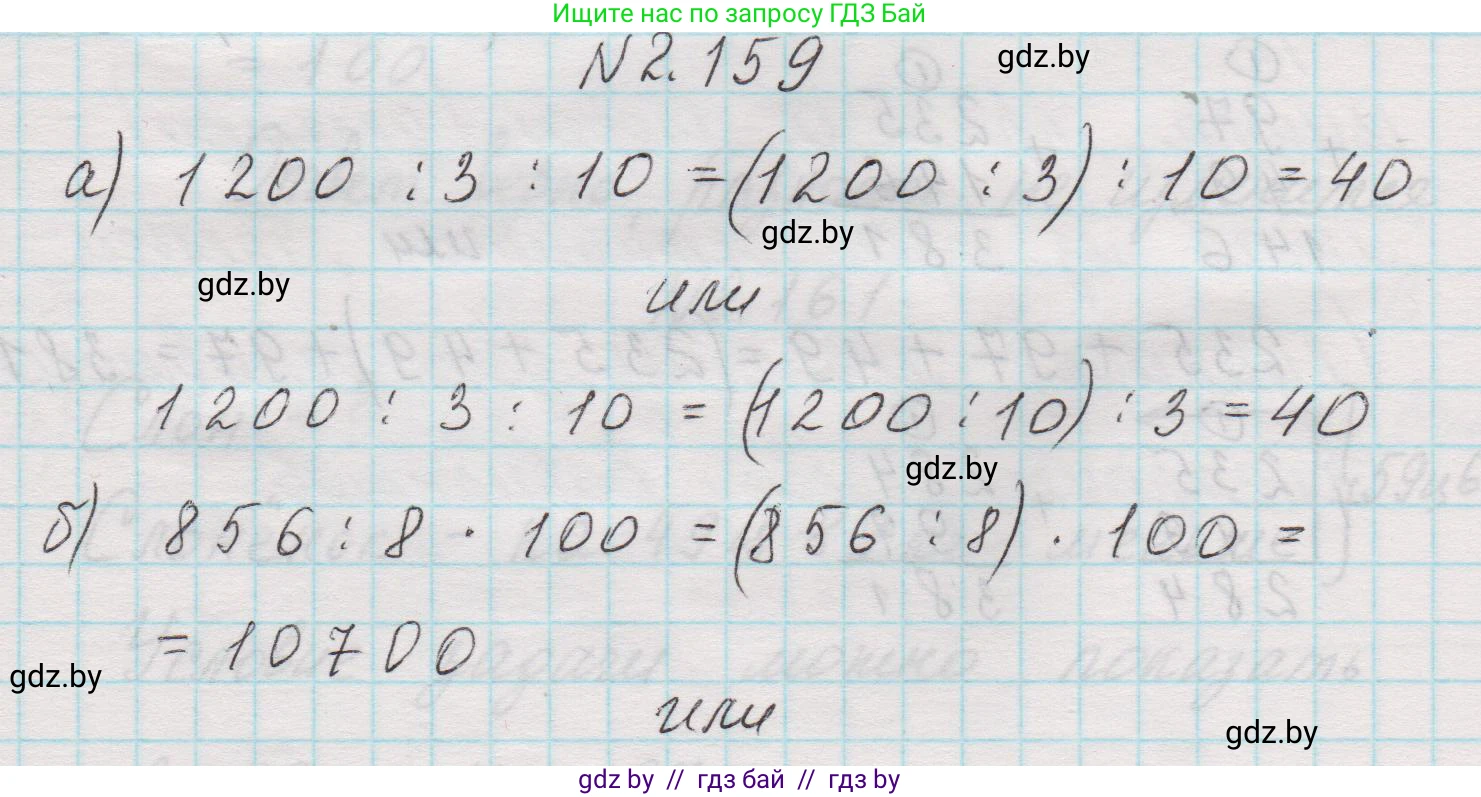 Ищите нас по запросу ГДЗ Бай
N 2.159
gdz.by
а) 1200 : 3 : 10 = (1200 : 3) : 10 = 40
gdz.by
gdz.by
или
1200 : 3 : 10 = (1200 : 10) : 3 = 40
gdz.by
б) 856 : 8 · 100 = (856 : 8) · 100 =
= 10700
gdz.by
или
gdz.by
gdz by // гдз бай // гдз by